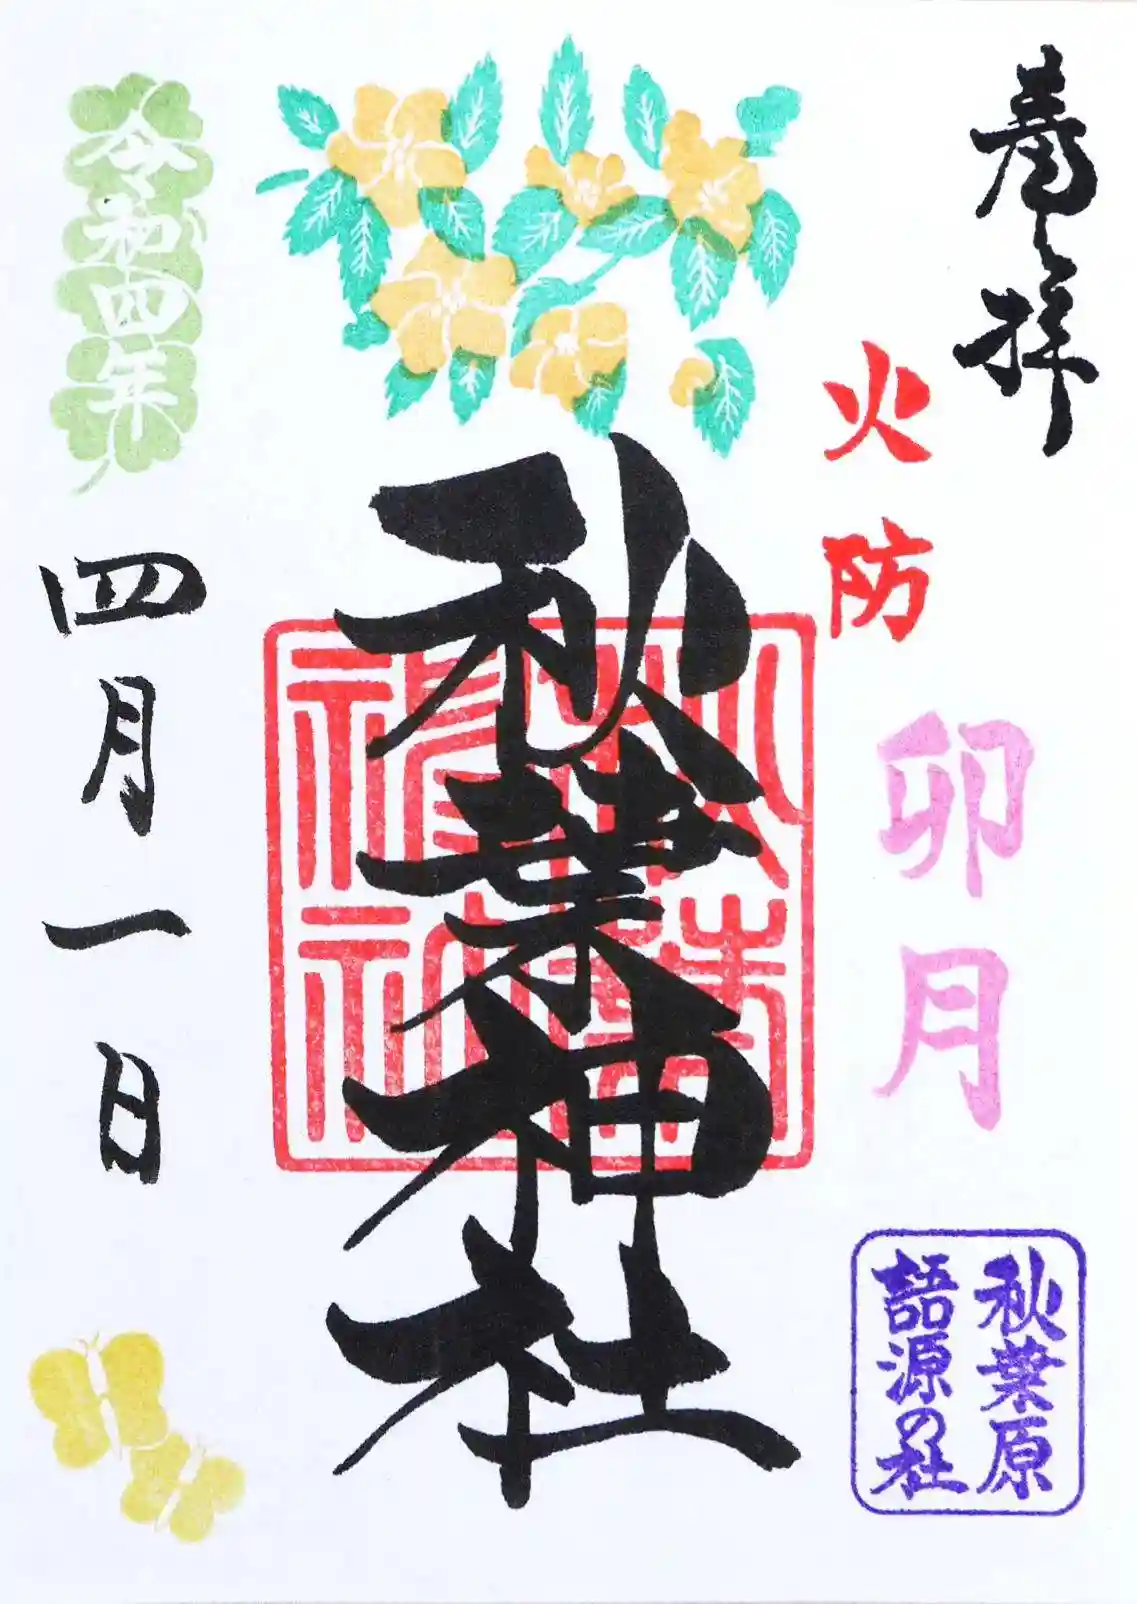 奉拝
火防
卯月
秋葉原
語源の社
秋葉神社
秋葉
神社
令和四年
四月一日